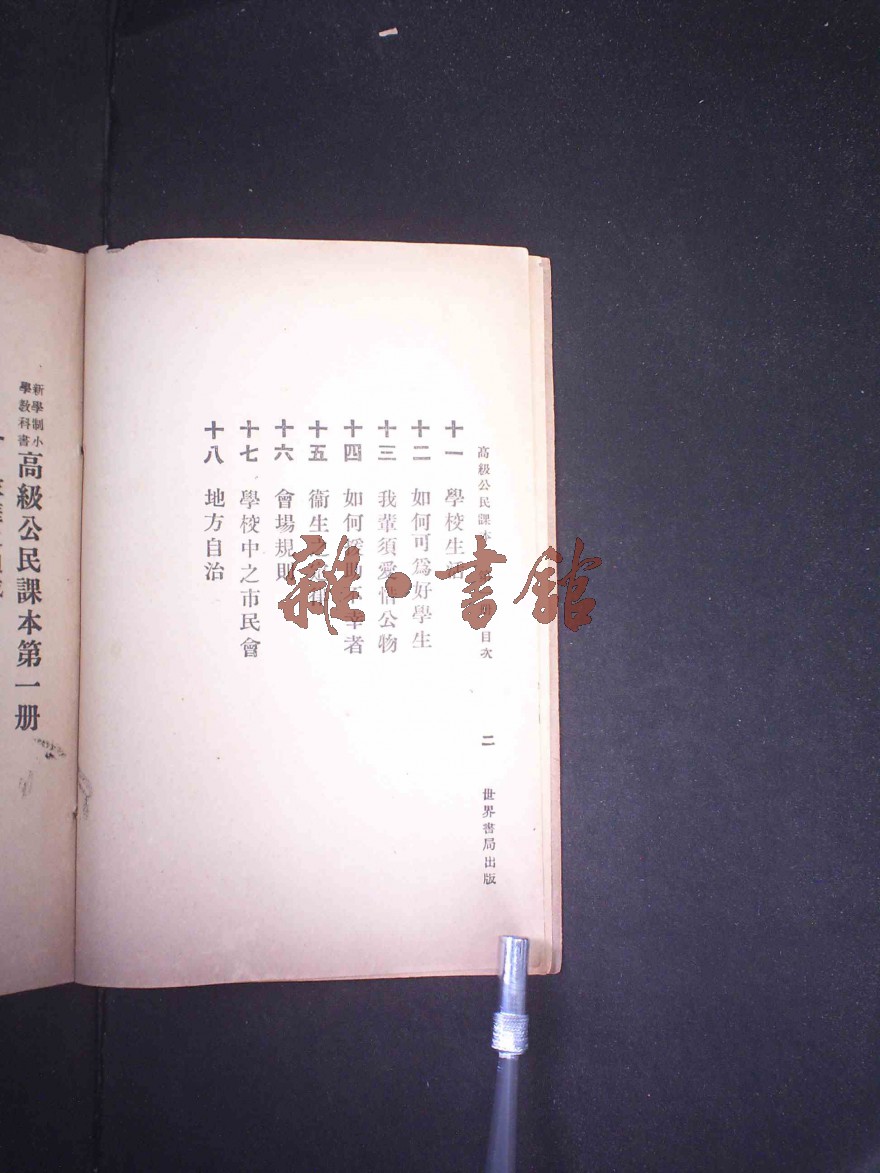 高級公民課本 目次 二 世界書局出版
十一 學校生活
十二 如何可爲好學生
十三 我輩須愛惜公物
十四 如何援助不幸者
十五 衞生之
十六 會場規則
十七 學校中之市民會
十八 地方自治
新學制小學教科書 高級公民課本第一册
雜·書館